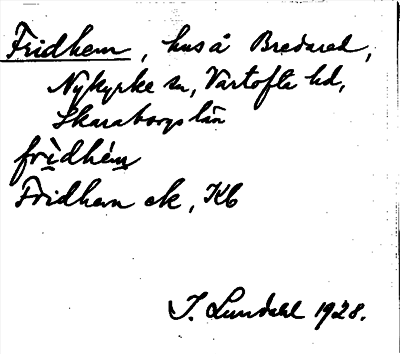 Fridhem, hus å Bredared,
Nykyrke sn, Vartofta hd,
Skaraborgs län
frìdhém
Fridhem ek, Kb
I. Lundahl 1928.